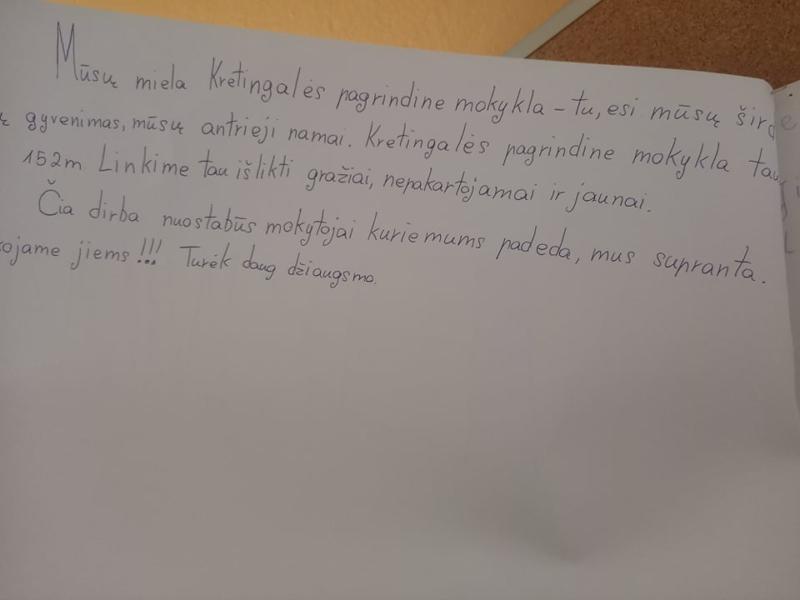 Mūsų miela Kretingalės pagrindine mokykla - tu, esi mūsų širde
gyvenimas, mūsų antrieji namai. Kretingalės pagrindine mokykla tau
152m Linkime tau išlikti gražiai, nepakartojamai ir jaunai.
Čia dirba nuostabūs mokytojai kurie mums padeda, mus supranta.
ojame jiems!!! Turėk daug džiaugsmo.